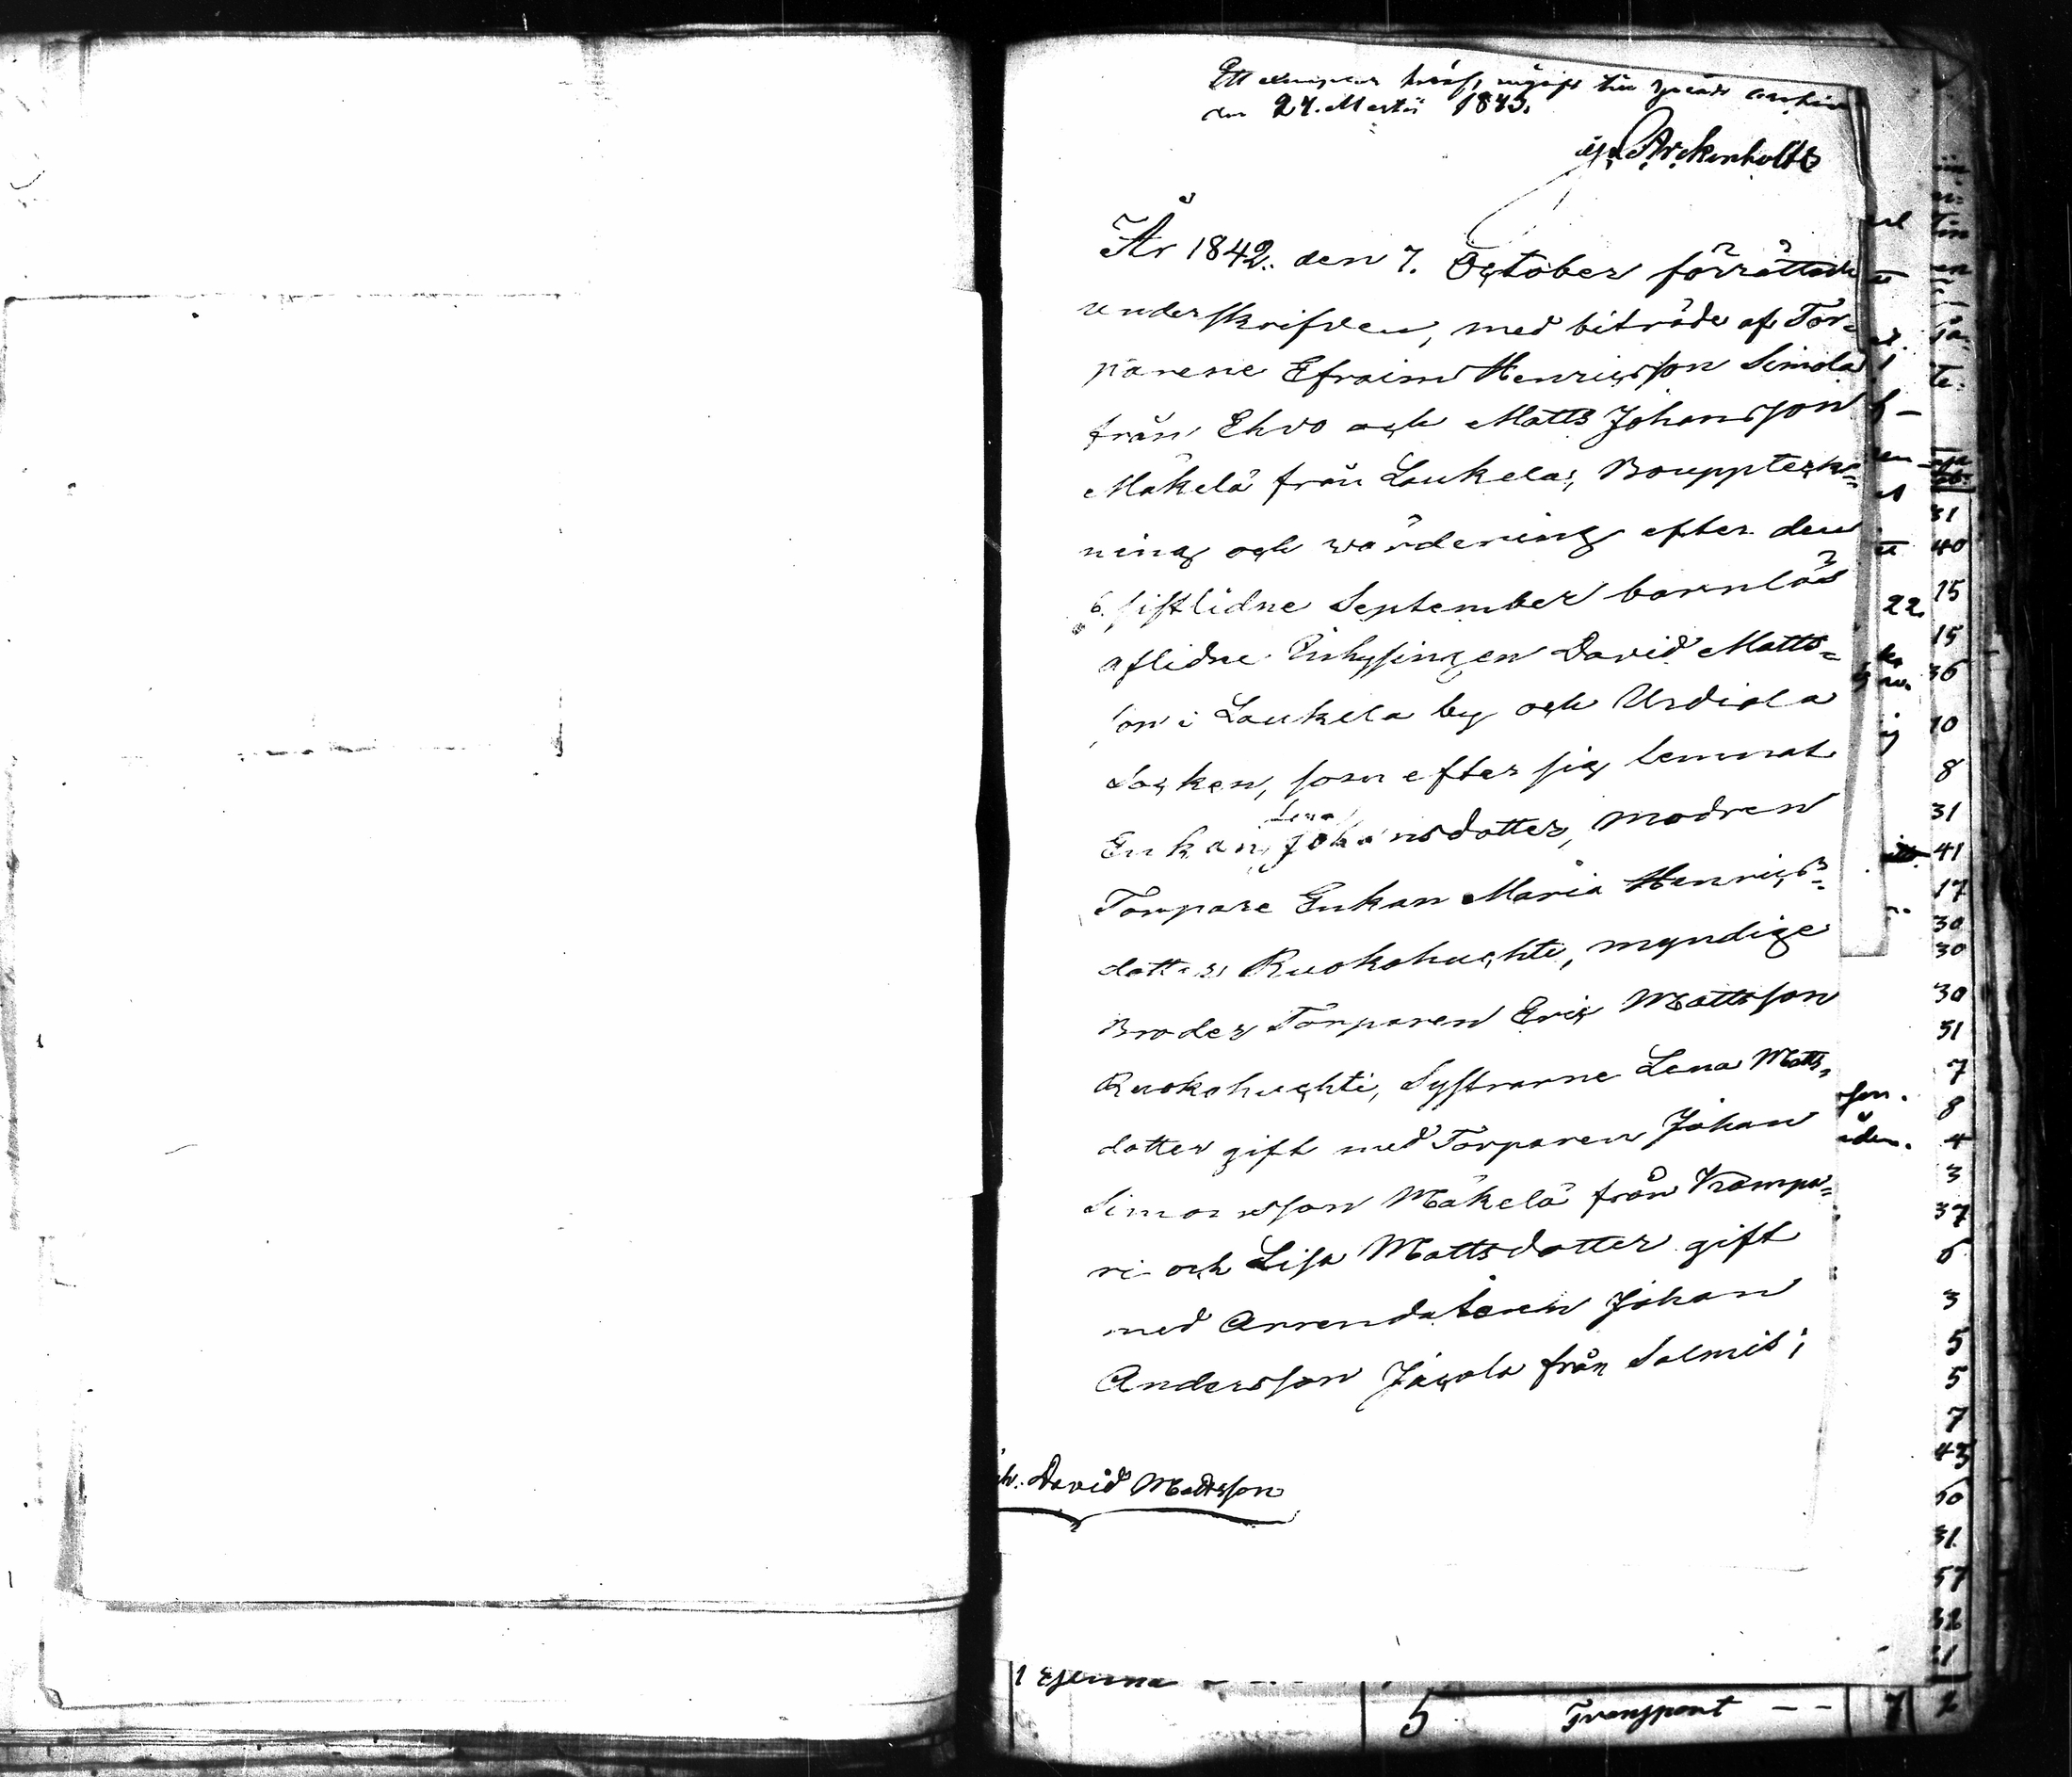 Ett exemplar häraf, ingifvit till Härads archiv
den 24. Martii 1843.
Arckenholtz
År 1842. den 7. October förrättade
underskrifven, med biträde af Tor-
parene Efraim Henricsson Simola
från Ehvo och Matts Johansson
Mäkelä från Laukela, Bouppteck=
ning och wärdering efter den
6. sistlidne September barnlös
aflidne Inhysingen David Matts=
son i Laukela by och Urdiala
Socken, som efter sig lemnat
Lena
Enkan, Johansdotter, modren
Torpare Enkan Maria Henrics=
dotter Ruokohuchti, myndige
Broder Torparen Eric Mattsson
Ruokohuchti, Systrarne Lena Matts,
dotter gift med Torparen Johan
Simonsson Mäkelä från Krampu=
ri och Lisa Mattsdotter gift
med Arrendatoren Johan
Andersson Jacola från Salmis;
David Mattsson
31
40
22. 15
15
36
10
8
31
41
17
30
30
30
51
7
8
4
3
37
6
3
5
5
7
43
50
31.
57
32
1
5 Transport - - 7 2